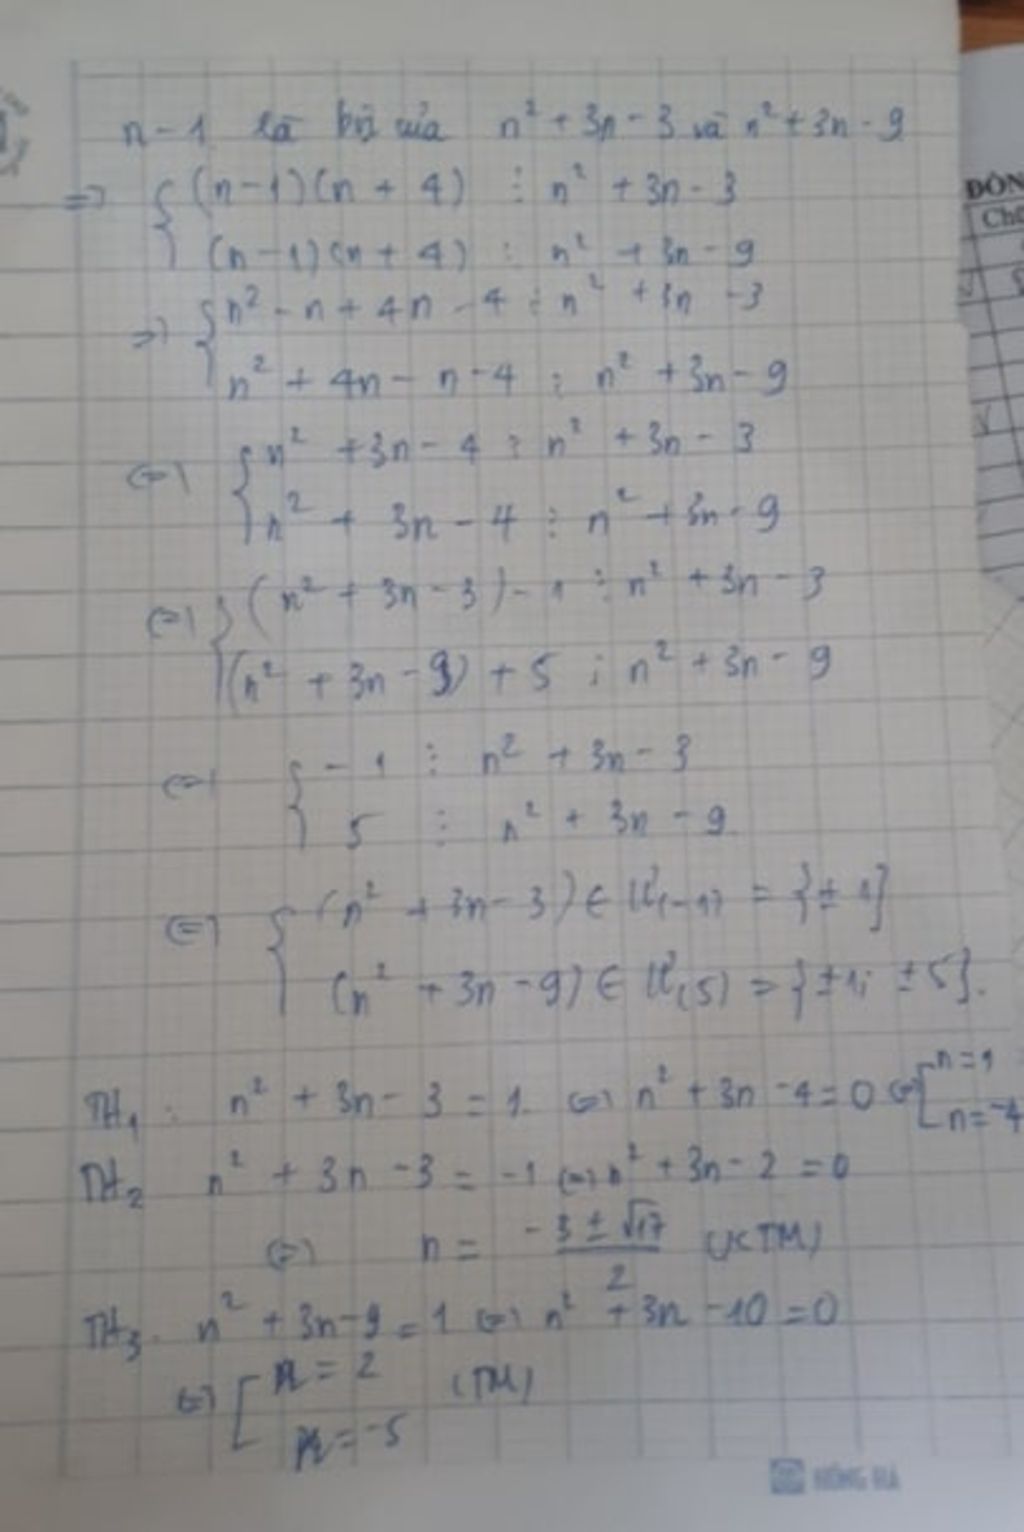 n - 1 là bội của n² + 3n - 3 và n² + 3n - 9
=> { (n-1)(n + 4) ⋮ n² + 3n - 3
(n-1)(n + 4) ⋮ n² + 3n - 9
=> { n² - n + 4n - 4 ⋮ n² + 3n - 3
n² + 4n - n - 4 ⋮ n² + 3n - 9
<=> { n² + 3n - 4 ⋮ n² + 3n - 3
n² + 3n - 4 ⋮ n² + 3n - 9
<=> { (n² + 3n - 3) - 1 ⋮ n² + 3n - 3
(n² + 3n - 9) + 5 ⋮ n² + 3n - 9
<=> { - 1 ⋮ n² + 3n - 3
5 ⋮ n² + 3n - 9
<=> { (n² + 3n - 3) ∈ Ư(-1) = {± 1}
(n² + 3n - 9) ∈ Ư(5) = {±1; ±5}.
TH₁ : n² + 3n - 3 = 1 <=> n² + 3n - 4 = 0 <=> [ n = 1
n = -4
TH₂ n² + 3n - 3 = -1 <=> n² + 3n - 2 = 0
<=> n = (-3 ± √17)/2 (KTM)
TH₃. n² + 3n - 9 = 1 <=> n² + 3n - 10 = 0
<=> [ n = 2 (TM)
n = -5
HỒNG HÀ
ĐÔN